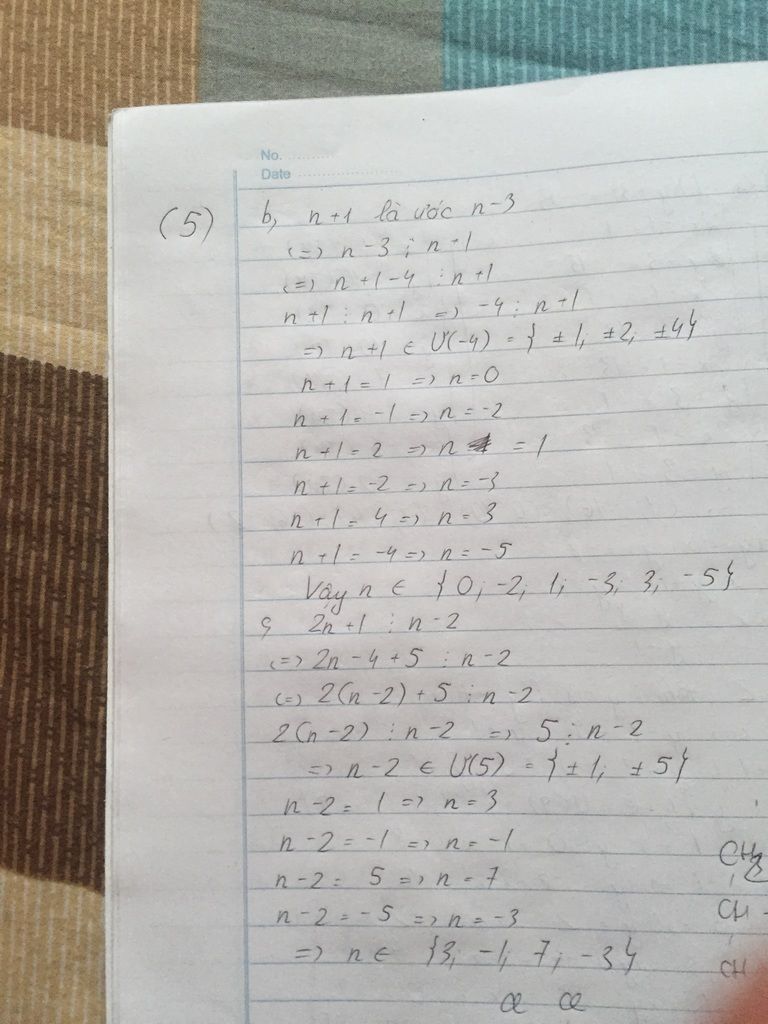 No. ............
Date ........................
(5) b, n+1 là ước n-3
(=) n-3 ⋮ n+1
(=) n+1-4 ⋮ n+1
n+1 ⋮ n+1 => -4 ⋮ n+1
=> n+1 ∈ Ư(-4) = { ±1; ±2; ±4}
n+1 = 1 => n=0
n+1 = -1 => n = -2
n+1 = 2 => n = 1
n+1 = -2 => n = -3
n+1 = 4 => n = 3
n+1 = -4 => n = -5
Vậy n ∈ { 0; -2; 1; -3; 3; -5}
c, 2n+1 ⋮ n-2
(=) 2n-4+5 ⋮ n-2
(=) 2(n-2)+5 ⋮ n-2
2(n-2) ⋮ n-2 => 5 ⋮ n-2
=> n-2 ∈ Ư(5) = { ±1; ±5}
n-2 = 1 => n = 3
n-2 = -1 => n = -1
n-2 = 5 => n = 7
n-2 = -5 => n = -3
=> n ∈ {3; -1; 7; -3}
CH
CH -
CH